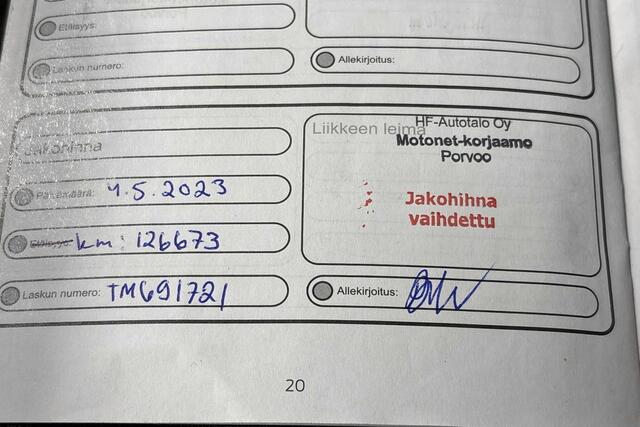 Etäisyys:
Laskun numero:
Allekirjoitus:
Jakohihna
Liikkeen leima
HF-Autotalo Oy
Motonet-korjaamo
Porvoo
Jakohihna
vaihdettu
Päivämäärä: 4.5.2023
Etäisyys: km: 126673
Laskun numero: TM691721
Allekirjoitus:
20